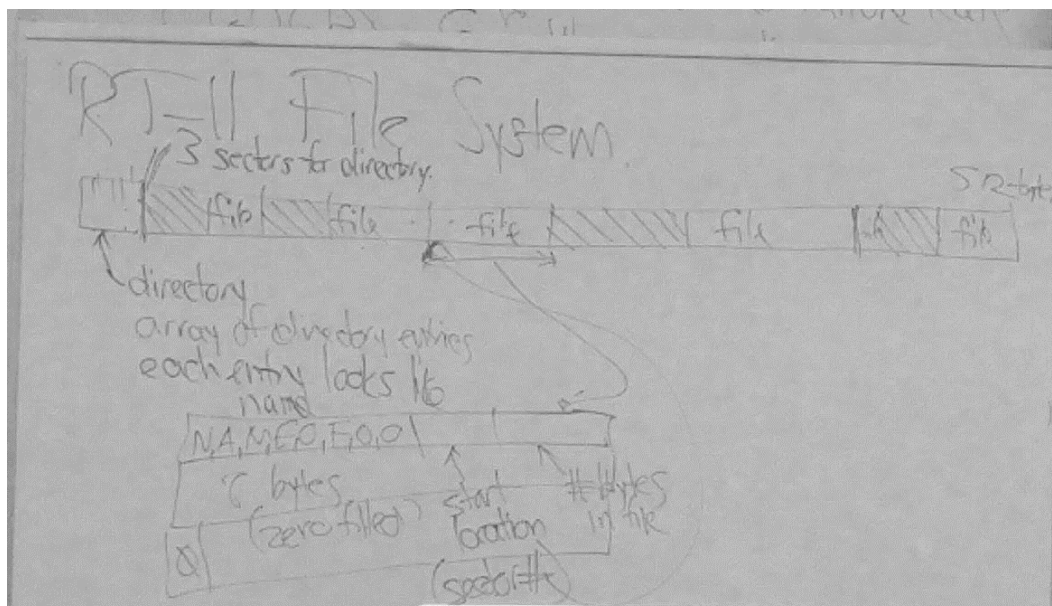 RT-11 File System.
3 sectors for directory.
file file file file file
directory
array of directory entries
each entry looks like
name
N,A,M,E,0,F,0,0
bytes
(zero filled)
start
location
(sector #)
# bytes
in file